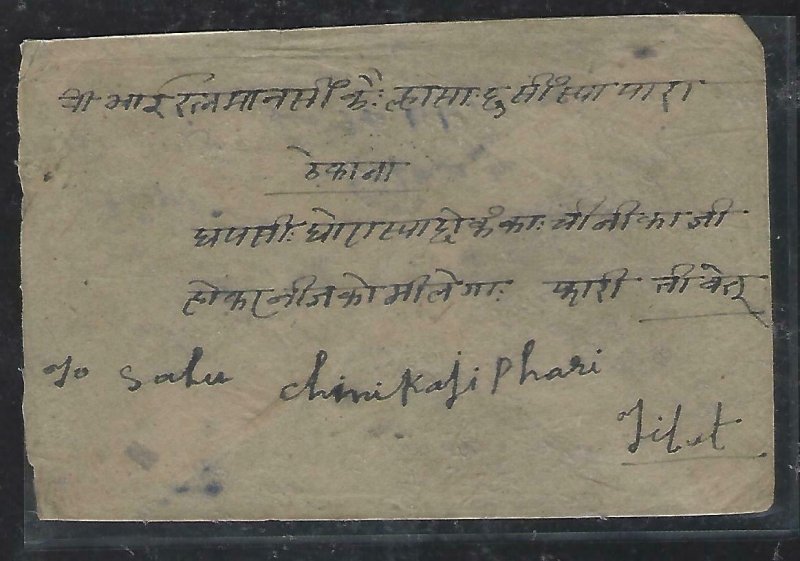 श्री भाई रत्नमानसीं कैः ल्हासाः दुसींस्पा पारा
ठेकाना
धंपसीः घोरास्पाद्दो कंकाः चीनीकाजी
होकर नीजको मीलेगाः फारी तीवेत्
To Sahu Chinikaji Phari
Tibet